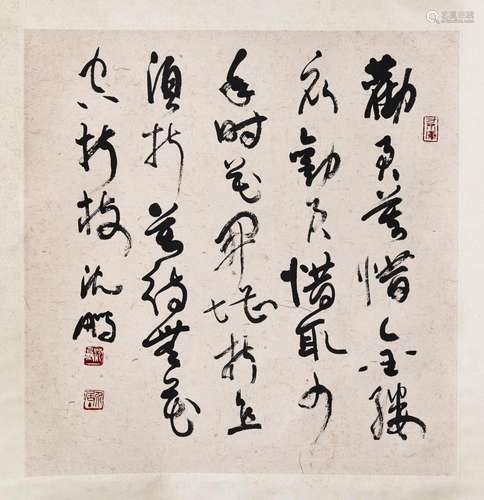 勸君莫惜金縷
衣勸君惜取少
年时花開堪折直
須折莫待無花
空折枝 沈鵬